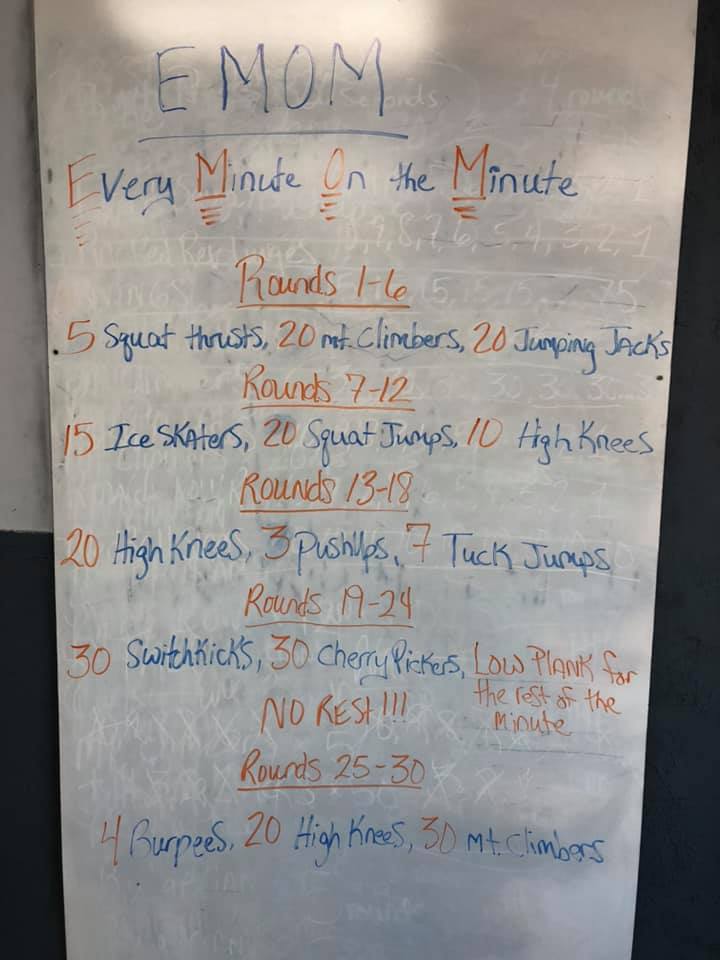 EMOM
Every Minute On the Minute
Rounds 1-6
5 Squat thrusts, 20 mt. Climbers, 20 Jumping Jacks
Rounds 7-12
15 Ice Skaters, 20 Squat Jumps, 10 High Knees
Rounds 13-18
20 High Knees, 3 PushUps, 7 Tuck Jumps
Rounds 19-24
30 SwitchKicks, 30 Cherry Pickers, LOW PLANK for
the rest of the
minute
NO REST!!!
Rounds 25-30
4 Burpees, 20 High Knees, 30 mt. Climbers